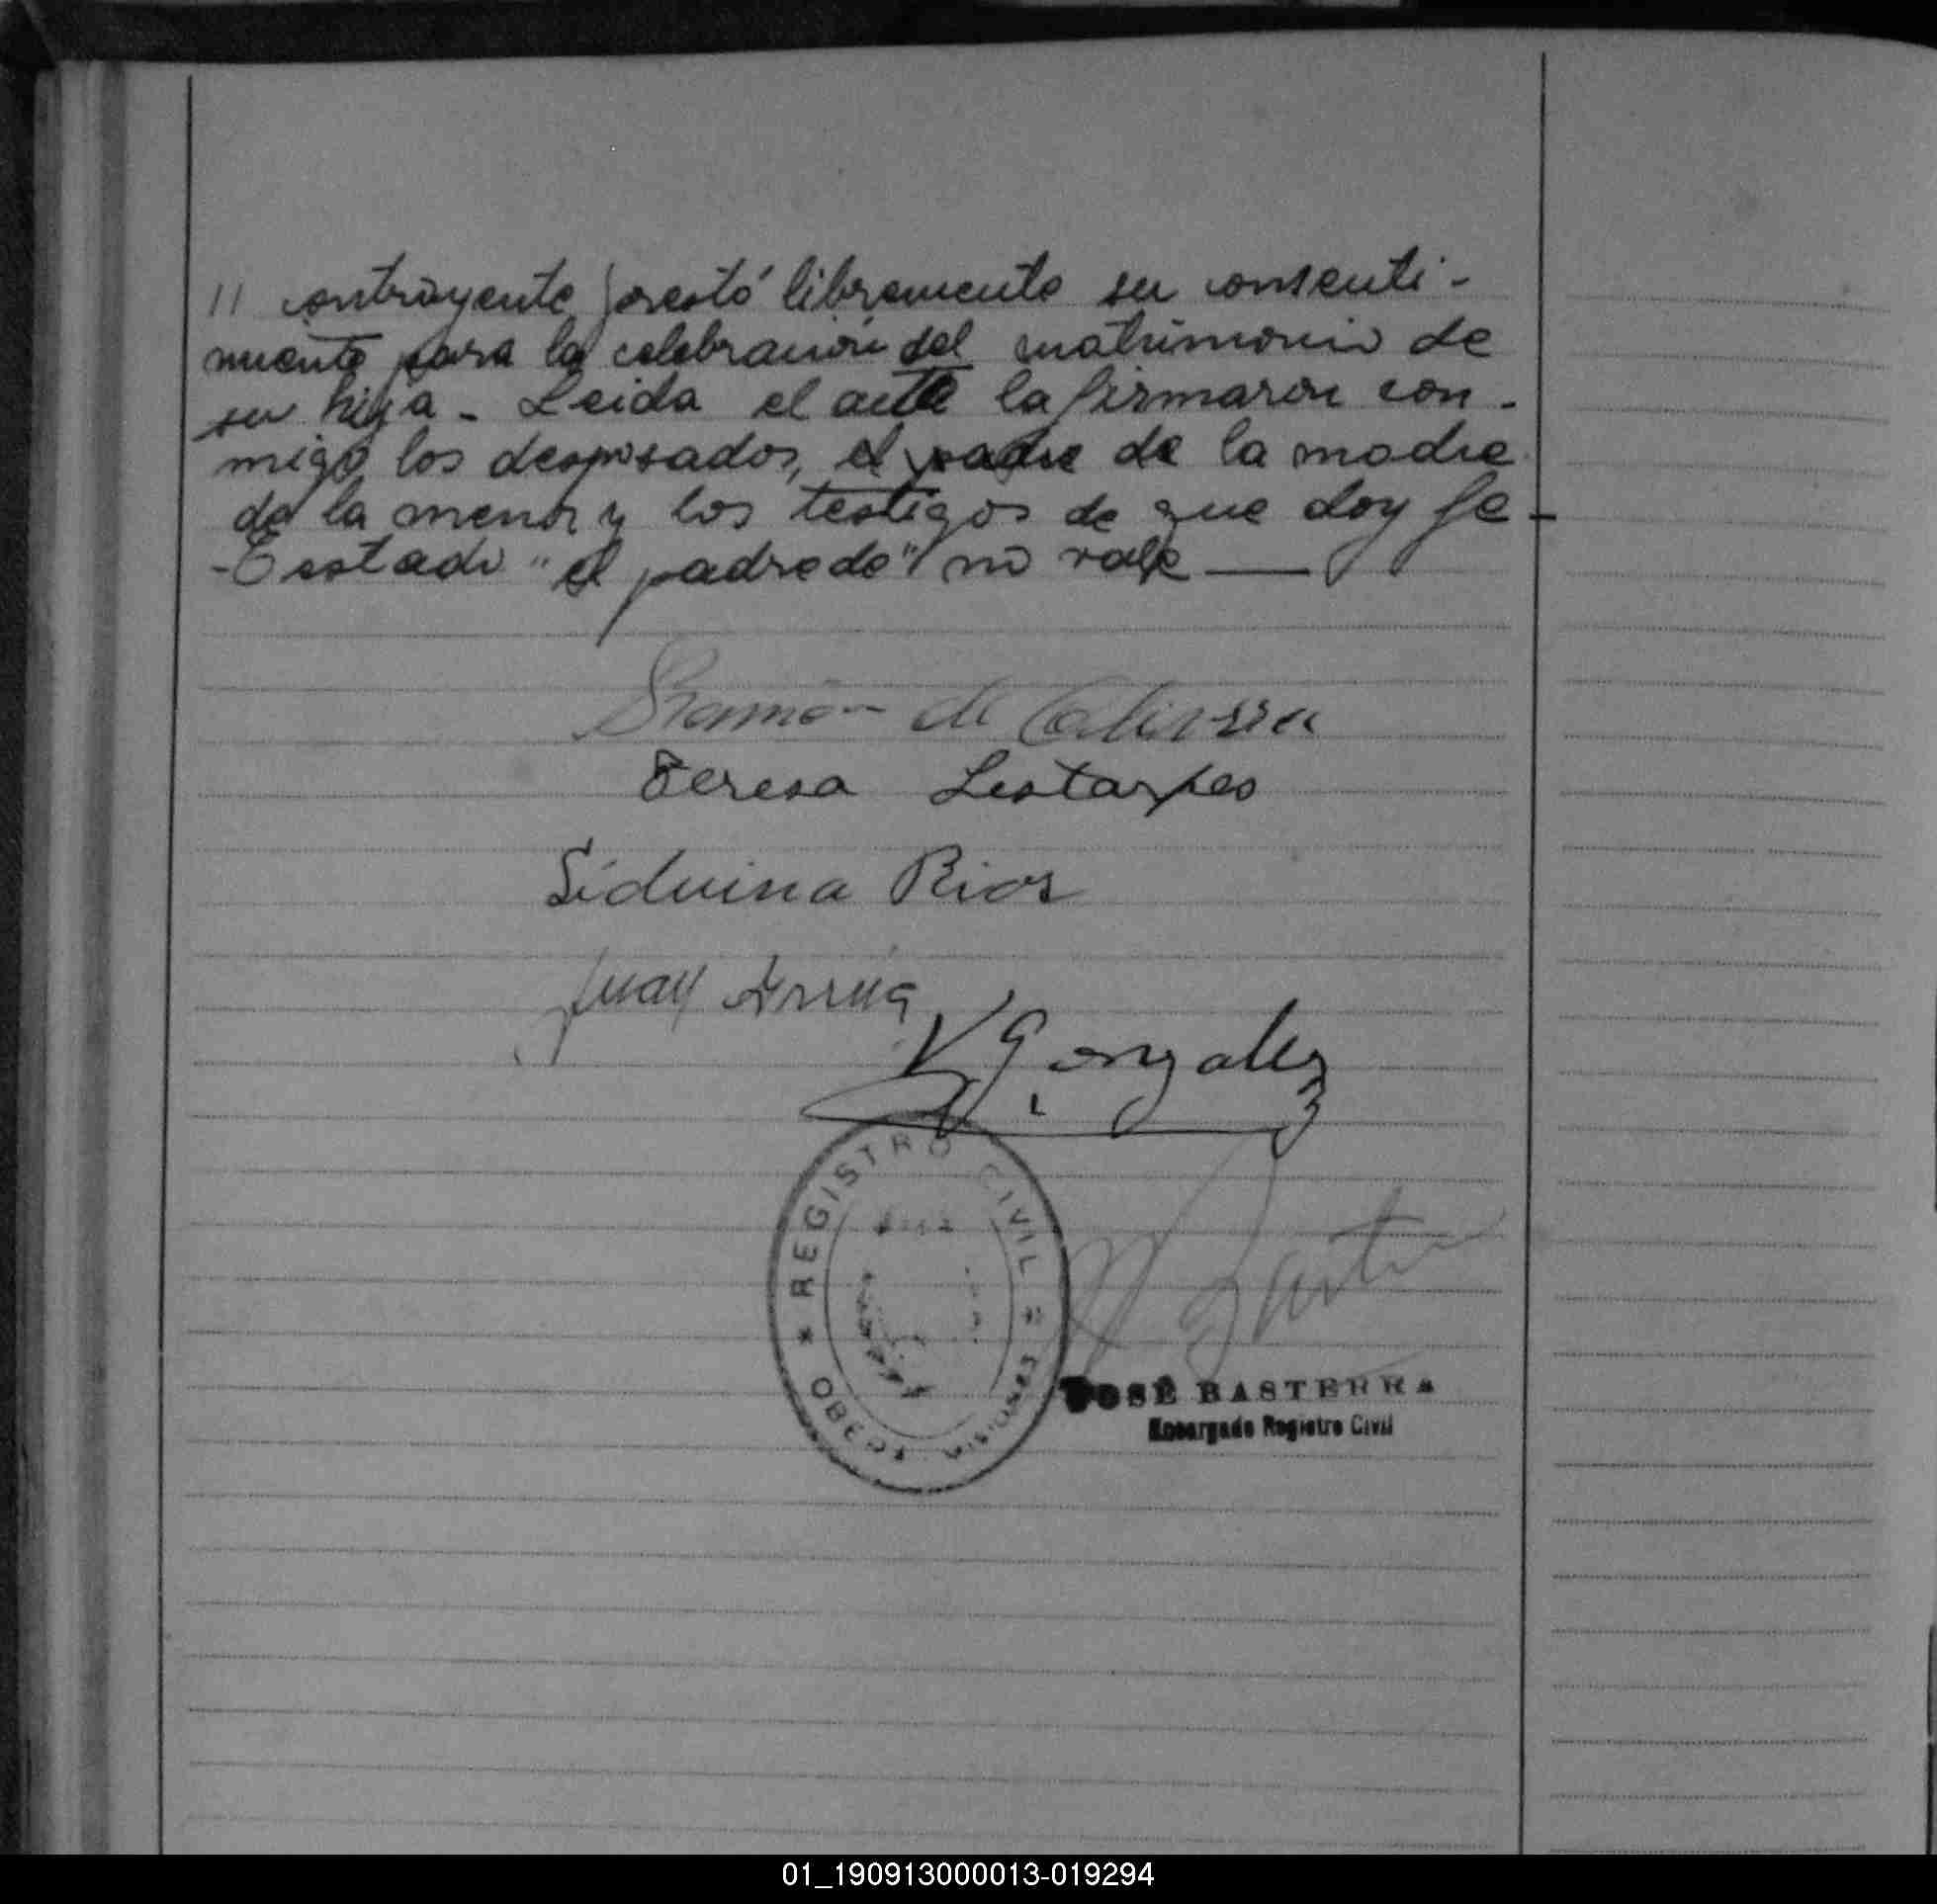 // contrayente prestó libremente su consenti-
miento para la celebración del matrimonio de
su hija - Leida el acta la firmaron con-
migo los desposados, el padre de la madre
de la menor y los testigos de que doy fe -
- Testado "el padre de" no vale —
Ramón de
Teresa Lestarpes
Siduina Rios
Juan Arrúa
V Gonzalez
REGISTRO CIVIL
* OBERA MISIONES *
JOSÉ BASTERRA
Encargado Registro Civil
01_190913000013-019294